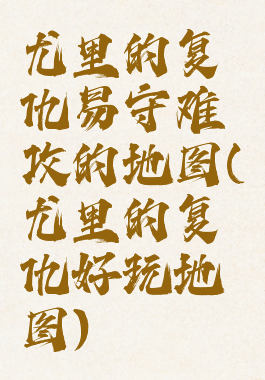 尤里的复
仇易守难
攻的地图(
尤里的复
仇好玩地
图)